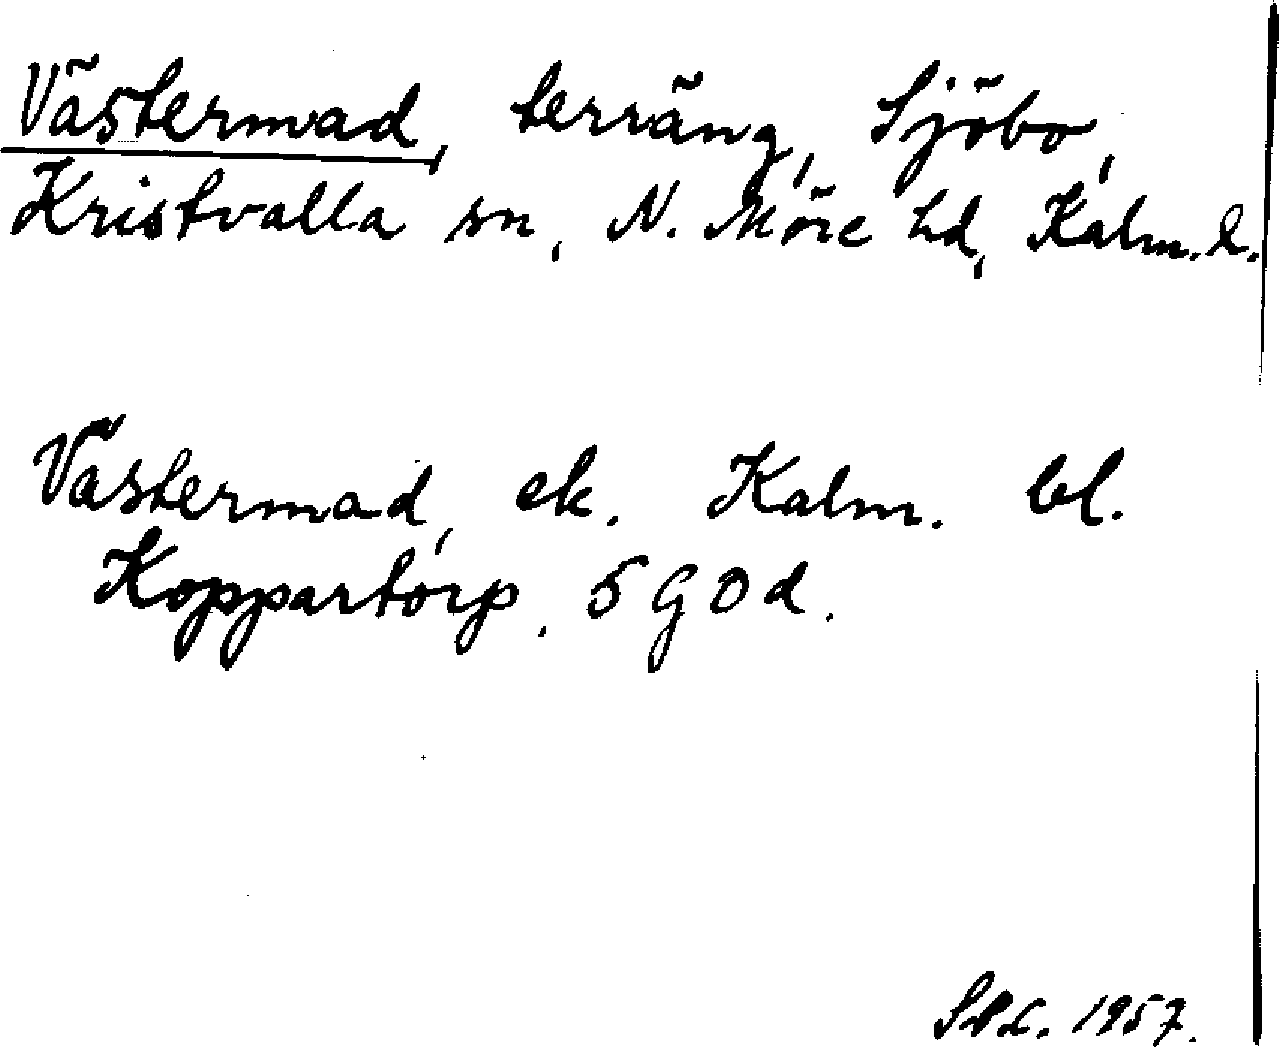 Västermad, terräng, Sjöbo,
Kristvalla sn, N. Möre hd, Kalm. l.
Västermad, ek. Kalm. bl.
Koppartorp, 5 G 0 d.
1957.